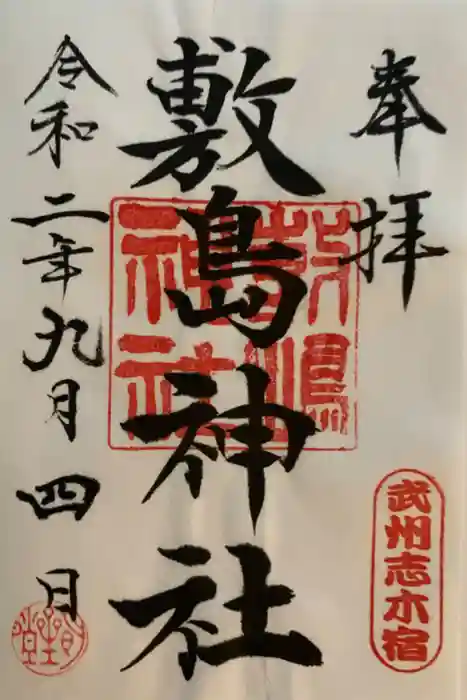 奉拝
武州志木宿
敷島神社
敷島神社
令和二年九月四日